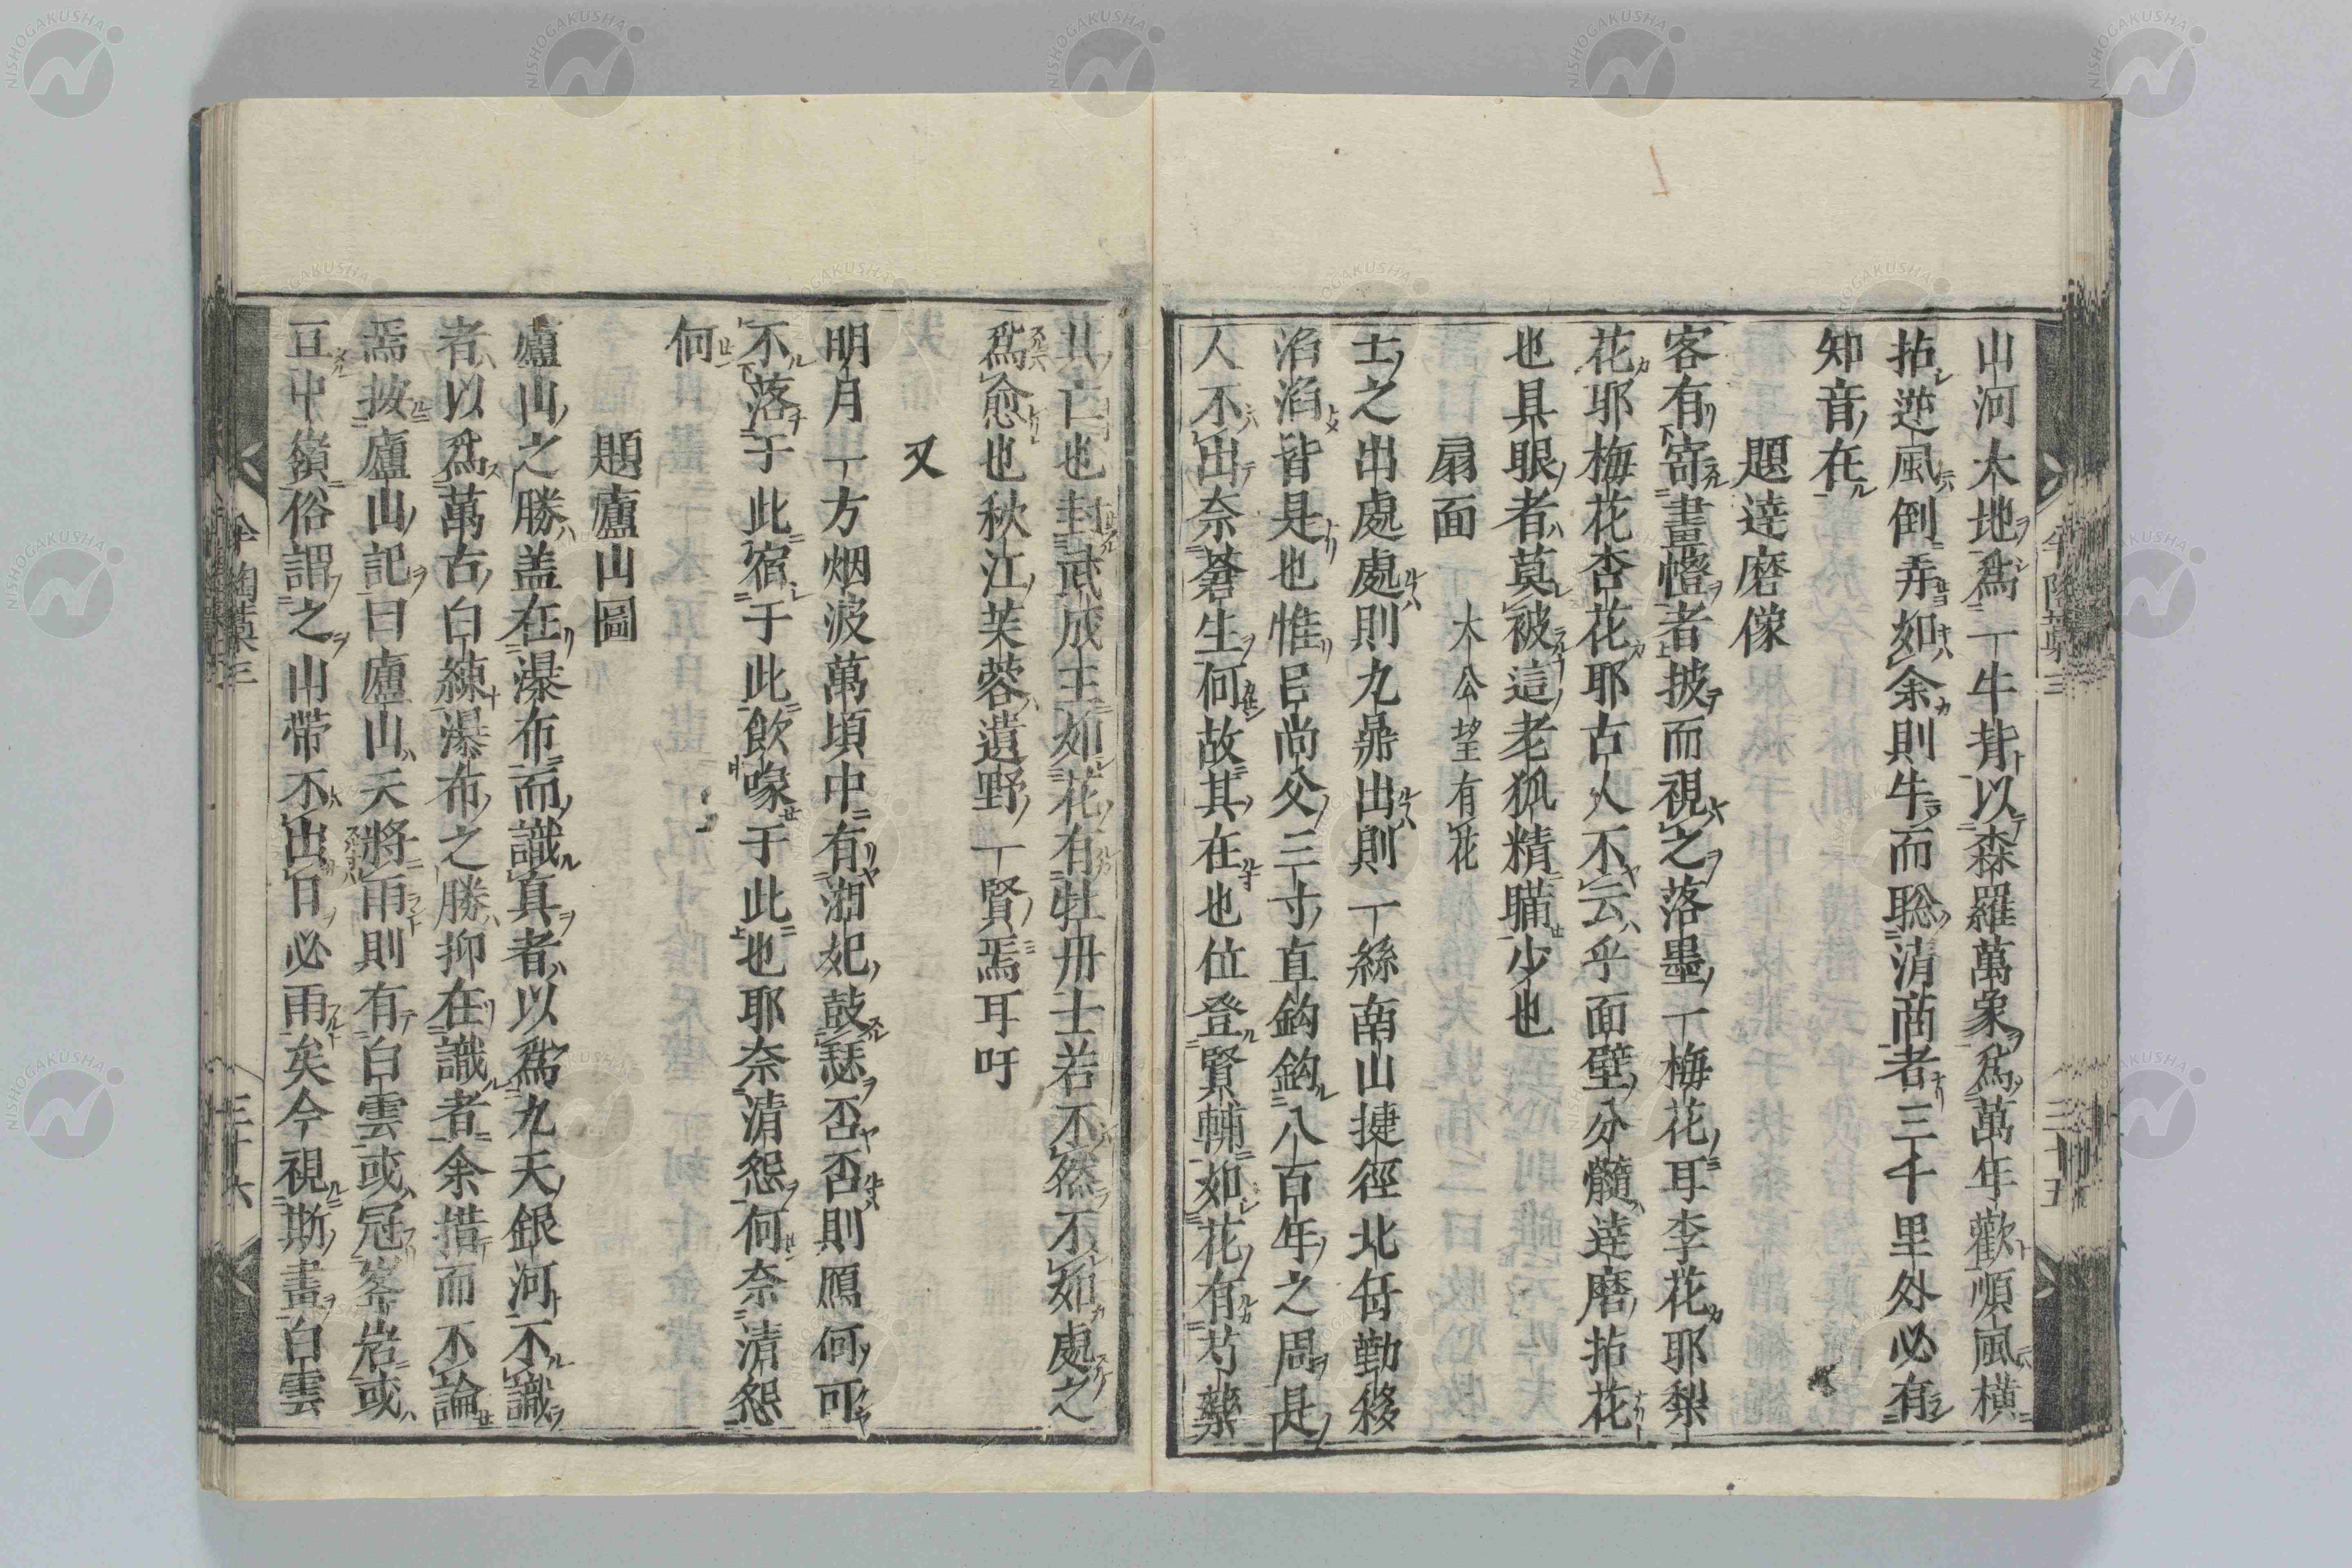 山河大地爲一牛背以森羅萬象爲萬年歡順風橫
拈逆風倒弄如余則牛而聡清商者三千里外必有
知音在
題達磨像
客有寄畫幨者披而視之落墨一梅花耳李花耶梨
花耶梅花杏花耶古人不云乎面壁分髓達磨拈花
也具眼者莫被這老狐精瞞少也
扇面 太公望有花
士之出處處則九鼎出則一絲南山捷徑北岳勤移
滔滔皆是也惟呂尚父三寸直鈎鈎八百年之周是
人不出奈蒼生何故其在也位登賢輔如花有芍藥
其亡也封武成王如花有牡丹士若不然不如處之
爲愈也秋江芙蓉遺野一賢焉耳吁
又
明月一方烟波萬頃中有湘妃鼓瑟否否則鴈何可
不落于此宿于此飲喙于此也耶奈清怨何奈清怨
何
題廬山圖
廬山之勝盖在瀑布而識真者以爲九天銀河不識
者以爲萬古白練瀑布之勝抑在識者余措而不論
焉披廬山記曰廬山天將雨則有白雲或冠峯岩或
亘中嶺俗謂之山帶不出日必雨矣今視斯畫白雲
三十五
三十六
NISHOGAKUSHA